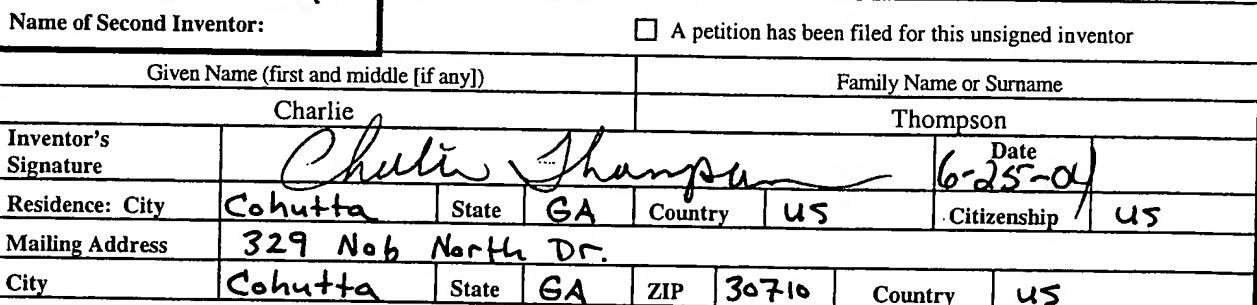 Name of Second Inventor: ☐ A petition has been filed for this unsigned inventor
Given Name (first and middle [if any]) Family Name or Surname
Charlie Thompson
Inventor's Signature Charlie Thompson Date 6-25-04
Residence: City Cohutta State GA Country US Citizenship US
Mailing Address 329 Nob North Dr.
City Cohutta State GA ZIP 30710 Country US